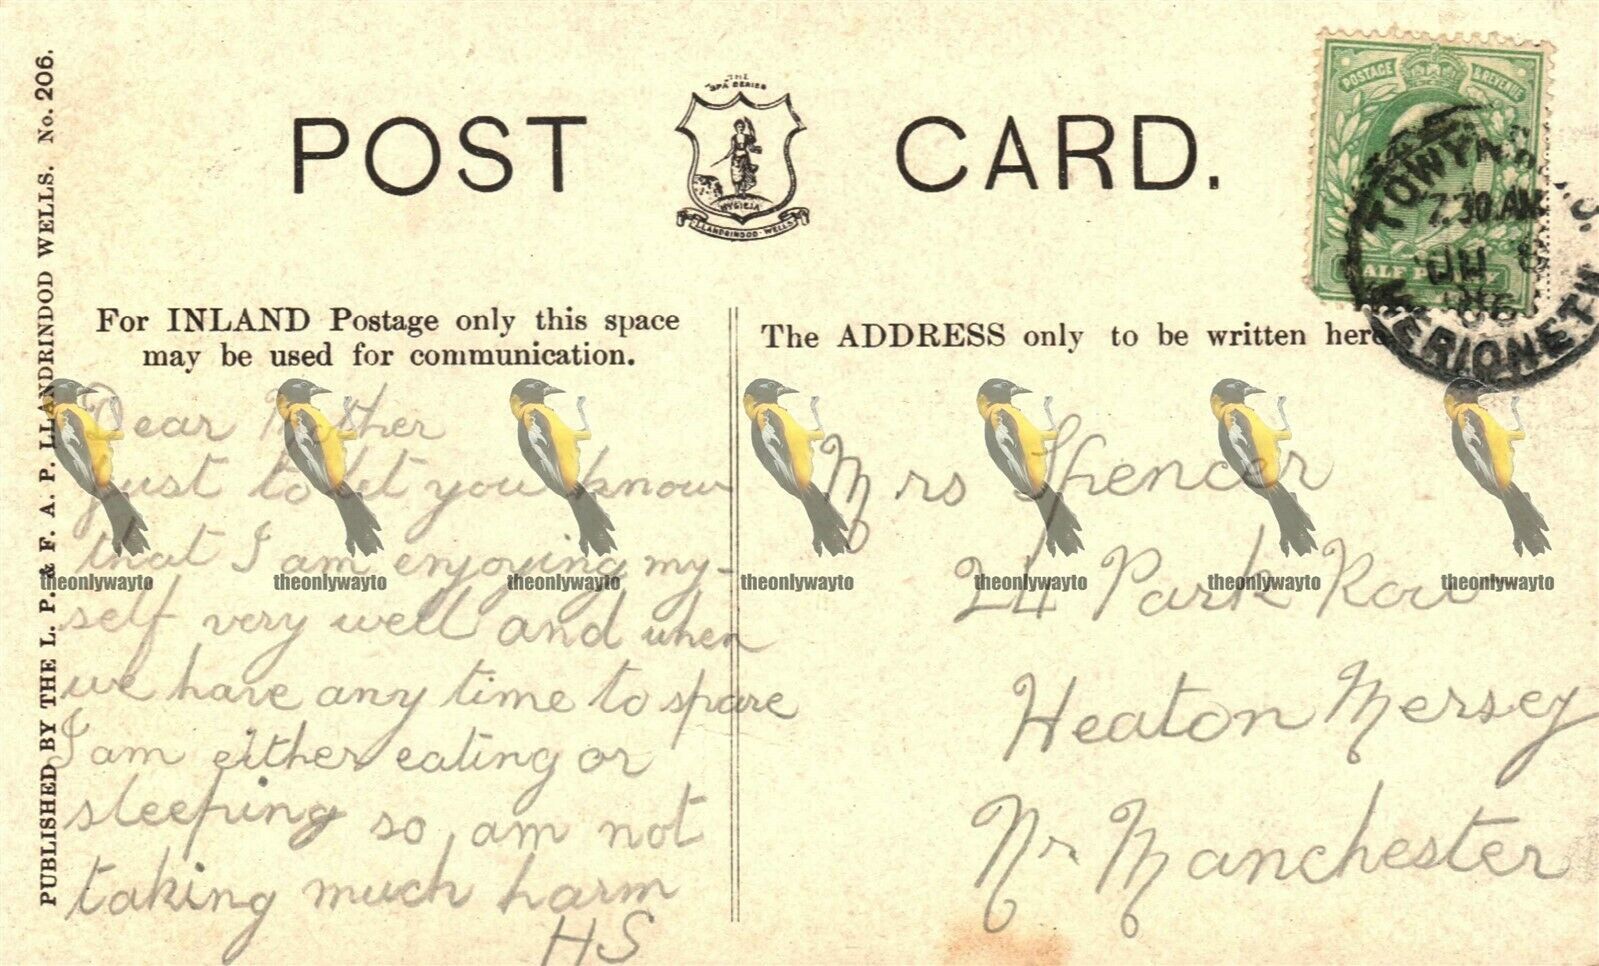 THE
SPA SERIES
POST CARD.
HYGIEIA
LLANDRINDOD-WELLS
POSTAGE & REVENUE
HALF PENNY
TOWYN
7.30.AM
06
MERIONETH
PUBLISHED BY THE L. P. & F. A. P. LLANDRINDOD WELLS. No. 206.
For INLAND Postage only this space
may be used for communication.
Dear Mother
just to let you know
that I am enjoying my-
self very well and when
we have any time to spare
I am either eating or
sleeping so am not
taking much harm
HS
The ADDRESS only to be written here
Mrs Spencer
24 Park Row
Heaton Mersey
Nr Manchester
theonlywayto theonlywayto theonlywayto theonlywayto theonlywayto theonlywayto theonlywayto